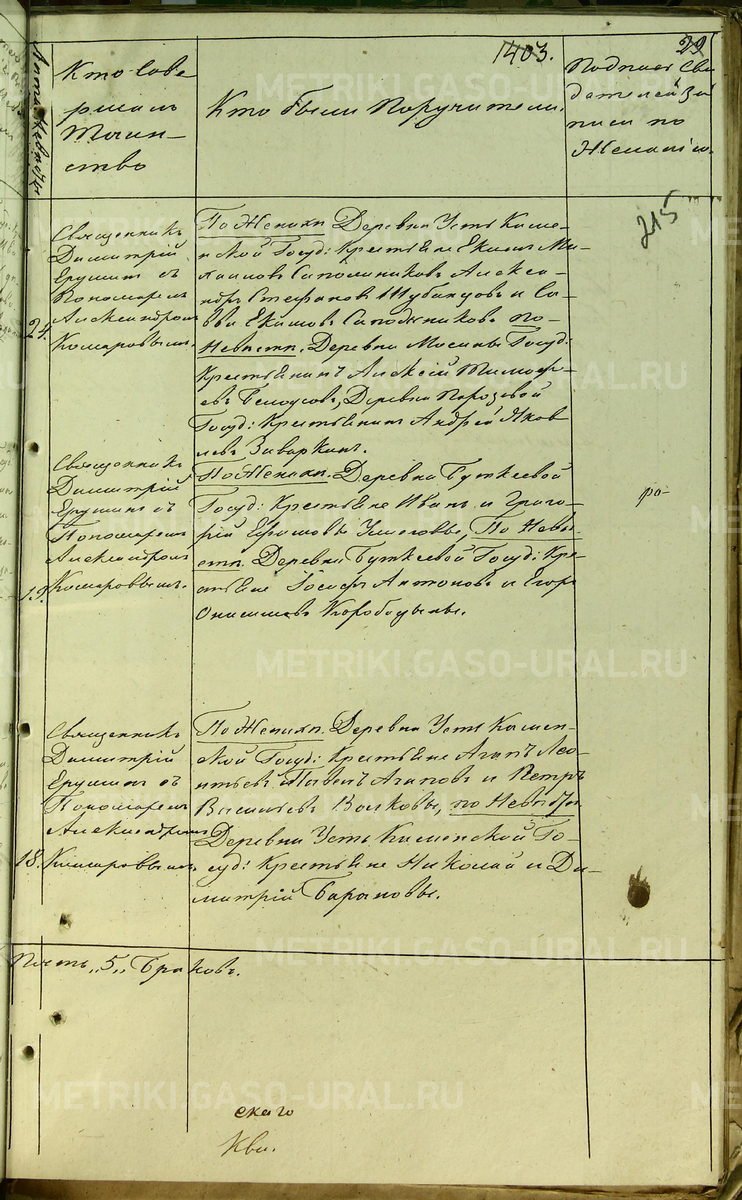 1403.
29
215
Лета Невесты
Кто Сове
ршалъ
Таин-
ство
Кто были Поручители.
Подписъ Сви
дателей за
писи по
Желанію.
24.
Священникъ
Димитрій
Ерушинъ съ
Пономаремъ
Александромъ
Комаровымъ.
По Женихѣ. Деревни Усть Камен-
ской Госуд: Крестьяне Екимъ Ми-
хаиловъ Сапожниковъ Алекса-
ндръ Стефановъ и Са-
вва Екимовъ Сапожниковъ по
Невѣстѣ. Деревни Мосины Госуд:
Крестьянинъ Алексѣй Тимофе-
евъ Белоусовъ, Деревни
Госуд: Крестьянинъ Андрей Яков
левъ Заваркинъ.
19.
Священникъ
Димитрій
Ерушинъ съ
Пономаремъ
Александромъ
Комаровымъ.
По Женихѣ. Деревни Буткеевой
Госуд: Крестьяне Иванъ и Григо-
рій Ефимовы По Невѣ-
стѣ. Деревни Буткеевой Госуд: Кре-
стьяне Іосифъ Антоновъ и Егоръ
Онисимовъ Коробицыны.
18.
Священникъ
Димитрій
Ерушинъ съ
Пономаремъ
Александромъ
Комаровымъ.
По Женихѣ. Деревни Усть Камен-
ской Госуд: Крестьяне Агапъ Лео-
нтьевъ Павелъ Агаповъ и Петръ
Васильевъ Волковы, по Невѣстѣ
Деревни Усть Каменской Го-
суд: Крестьяне Николай и Ди-
митрій Барановы.
Пять „5„ Браковъ.
скаго
METRIKI.GASO-URAL.RU